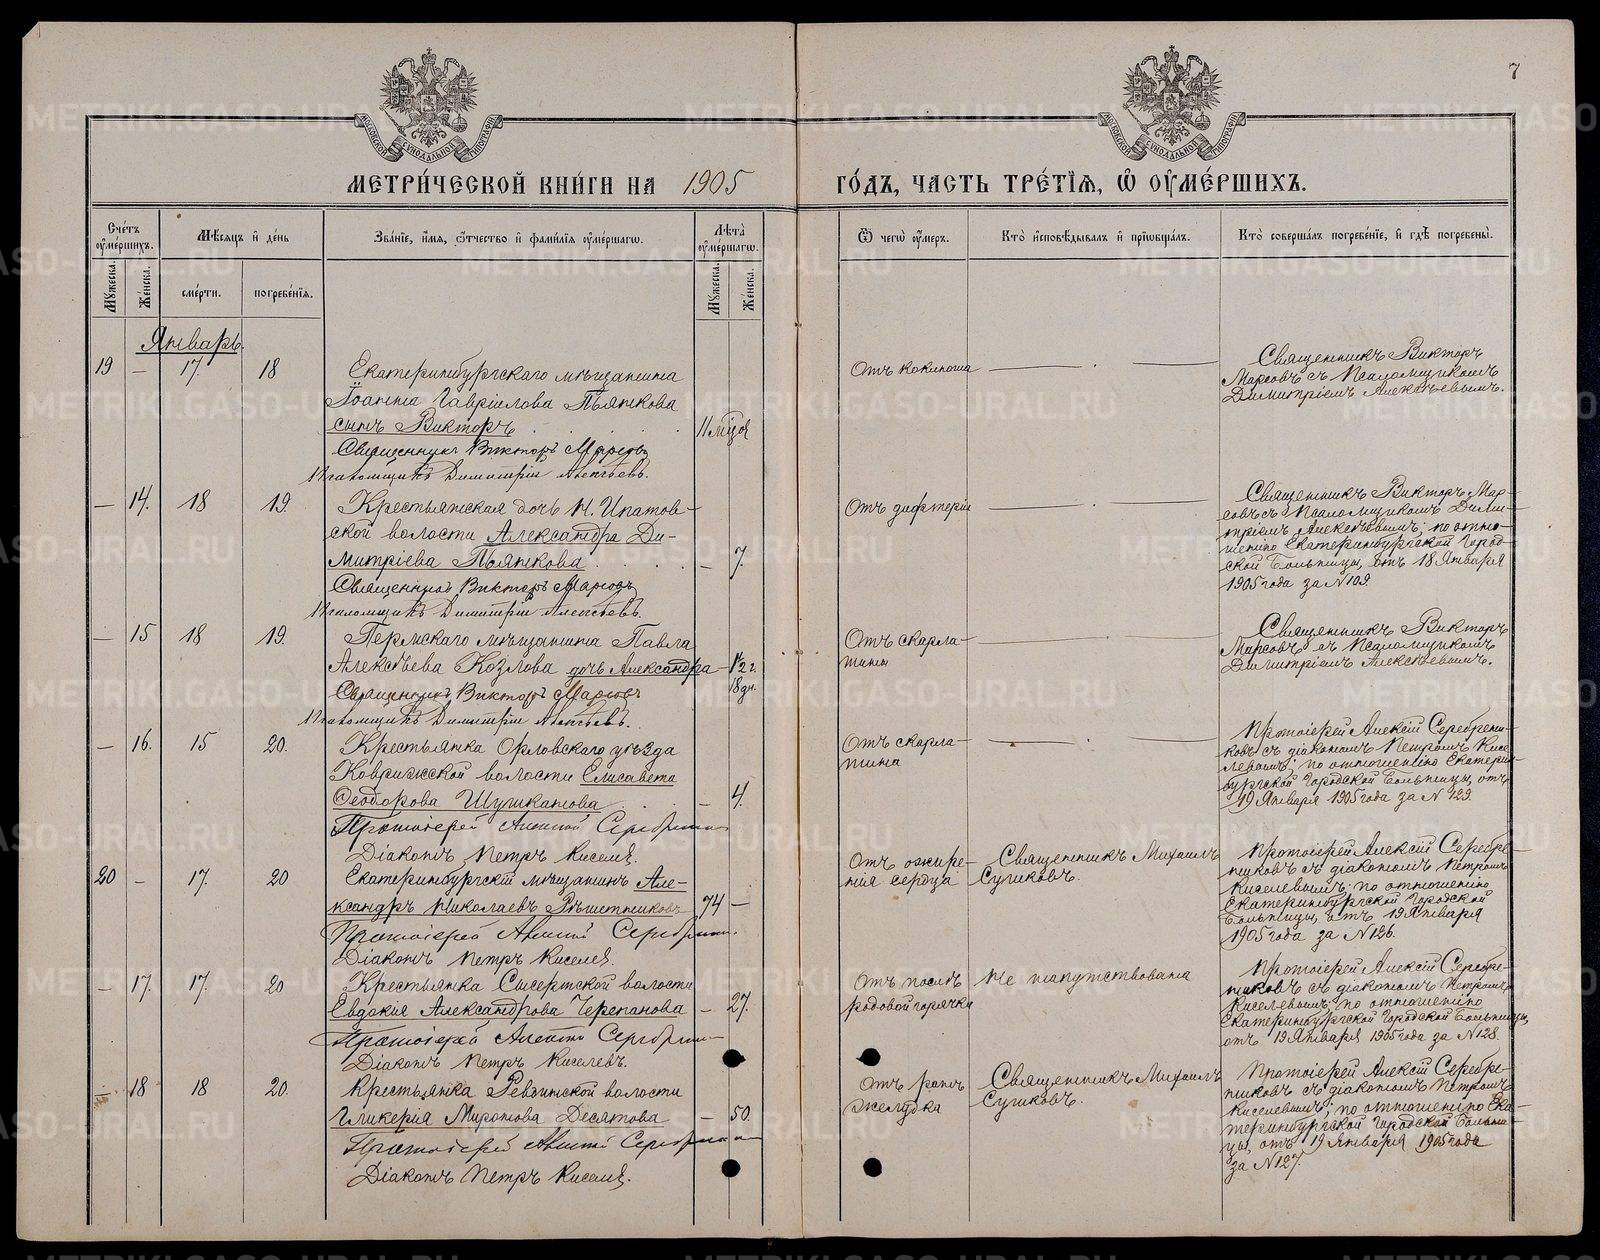 7
МОСКОВСКОЙ СѴНОДАЛЬНОЙ ТИПОГРАФІИ
МОСКОВСКОЙ СѴНОДАЛЬНОЙ ТИПОГРАФІИ
МЕТРИ́ЧЕСКОЙ КНИ́ГИ НА 1905 ГО́ДЪ, ЧАСТЬ ТРЕ́ТІѦ, Ѡ҆ ОУ҆МЕ́РШИХЪ.
Сче́тъ оу҆ме́ршихъ.
Мѣ́сяцъ и҆ де́нь
Зва́нїе, и҆́мя, ѻ҆́тчество и҆ фами́лїя оу҆ме́ршагѡ.
Лѣ́та оу҆ме́ршагѡ.
Ѿ чегѡ̀ оу҆́меръ.
Кто̀ и҆сповѣ́дывалъ и҆ прїѡбща́лъ.
Кто̀ соверша́лъ погребе́нїе, и҆ гдѣ̀ погребены̀.
Мꙋ́жеска.
Же́нска.
сме́рти.
погребе́нїя.
Мꙋ́жеска.
Же́нска.
Январь.
19 — 17. 18 Екатеринбургскаго мѣщанина
Іоанна Гавріилова Пьянкова
сынъ Викторъ 11 мѣс.
Священникъ Викторъ Марсовъ
Псаломщикъ Димитрій Алексѣевъ.
Отъ коклюша
Священникъ Викторъ
Марсовъ съ Псаломщикомъ
Димитріемъ Алексѣевымъ.
— 14. 18 19. Крестьянская дочь Н. Ипатов-
ской волости Александра Ди-
митріева Пьянкова — 7.
Священникъ Викторъ Марсовъ
Псаломщикъ Димитрій Алексѣевъ.
Отъ дифтерій
Священникъ Викторъ Мар-
совъ съ Псаломщикомъ Дими-
тріемъ Алексѣевымъ; по отно-
шенію Екатеринбургской Город-
ской Больницы, отъ 18 Января
1905 года за №109.
— 15 18 19. Пермскаго мѣщанина Павла
Алексѣева Козлова дочь Александра — 1½ г.
18 дн.
Священникъ Викторъ Марсовъ
Псаломщикъ Димитрій Алексѣевъ.
Отъ скарла-
тины
Священникъ Викторъ
Марсовъ съ Псаломщикомъ
Димитріемъ Алексѣевымъ.
— 16. 15 20. Крестьянка Орловскаго уѣзда
Коврижской волости Елисавета
Ѳеодорова Шушканова — 4.
Протоіерей Алексій Серебрени
Діаконъ Петръ Киселев.
Отъ скарла-
тина
Протоіерей Алексій Серебрени-
ковъ съ діакономъ Петромъ Кисе-
левымъ; по отношенію Екатерин-
бургской Городской Больницы, отъ
19 Января 1905 года за №129.
20 — 17. 20 Екатеринбургскій мѣщанинъ Але-
ксандръ Николаевъ Рѣшетниковъ 74 —
Протоіерей Алексій Серебрени.
Діаконъ Петръ Киселев.
Отъ ожире-
нія сердца
Священникъ Михаилъ
Сушковъ.
Протоіерей Алексій Серебре-
никовъ съ діакономъ Петромъ
Киселевымъ; по отношенію
Екатеринбургской Городской
Больницы, отъ 19 Января
1905 года за №126.
— 17. 17. 20 Крестьянка Сысертской волости
Евдокія Александрова Черепанова — 27.
Протоіерей Алексій Серебрени
Діаконъ Петръ Киселевъ.
Отъ послѣ
родовой горячки
Не напутствована
Протоіерей Алексій Серебре-
никовъ съ діакономъ Петромъ
Киселевымъ; по отношенію
Екатеринбургской Городской Больницы,
отъ 19 Января 1905 года за №128.
— 18 18 20. Крестьянка Ревдинской волости
Гликерія Миронова Десятова — 50.
Протоіерей Алексій Серебрени
Діаконъ Петръ Киселев.
Отъ рака
желудка
Священникъ Михаилъ
Сушковъ.
Протоіерей Алексій Серебре-
никовъ съ діакономъ Петромъ
Киселевымъ; по отношенію Ека-
теринбургской Городской Больни-
цы, отъ 19 Января 1905 года
за №127.
METRIKI.GASO-URAL.RU